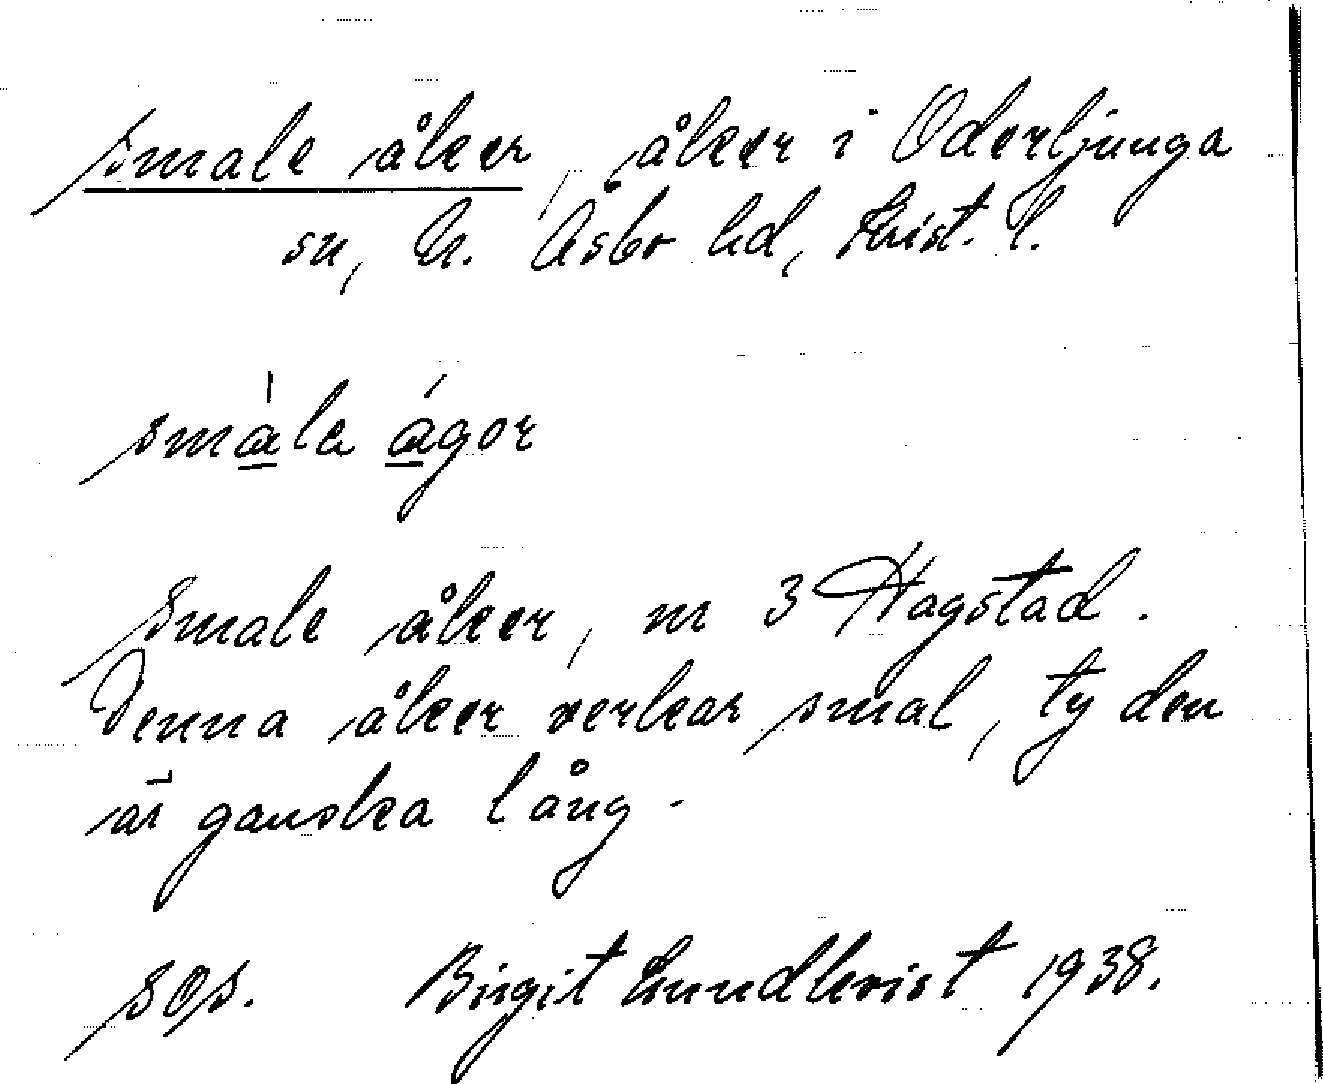 smale åker, åker i Oderljunga
sn, N. Åsbo hd, Krist. l.
smàla ágor
Smale åker, nr 3 Hagstad.
Denna åker verkar smal, ty den
är ganska lång.
sOs. Birgit Lundkvist 1938.